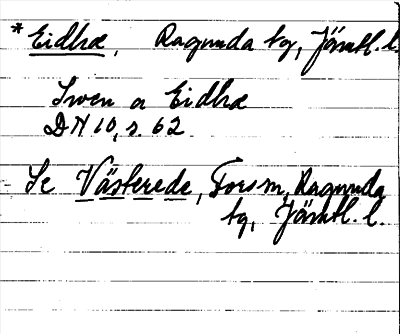 *Eidhæ, Ragunda tg, Jämtl. l.
Swen a Eidhæ
DN 10, s. 62
Se Västerede, Fors sn, Ragunda
tg, Jämtl. l.